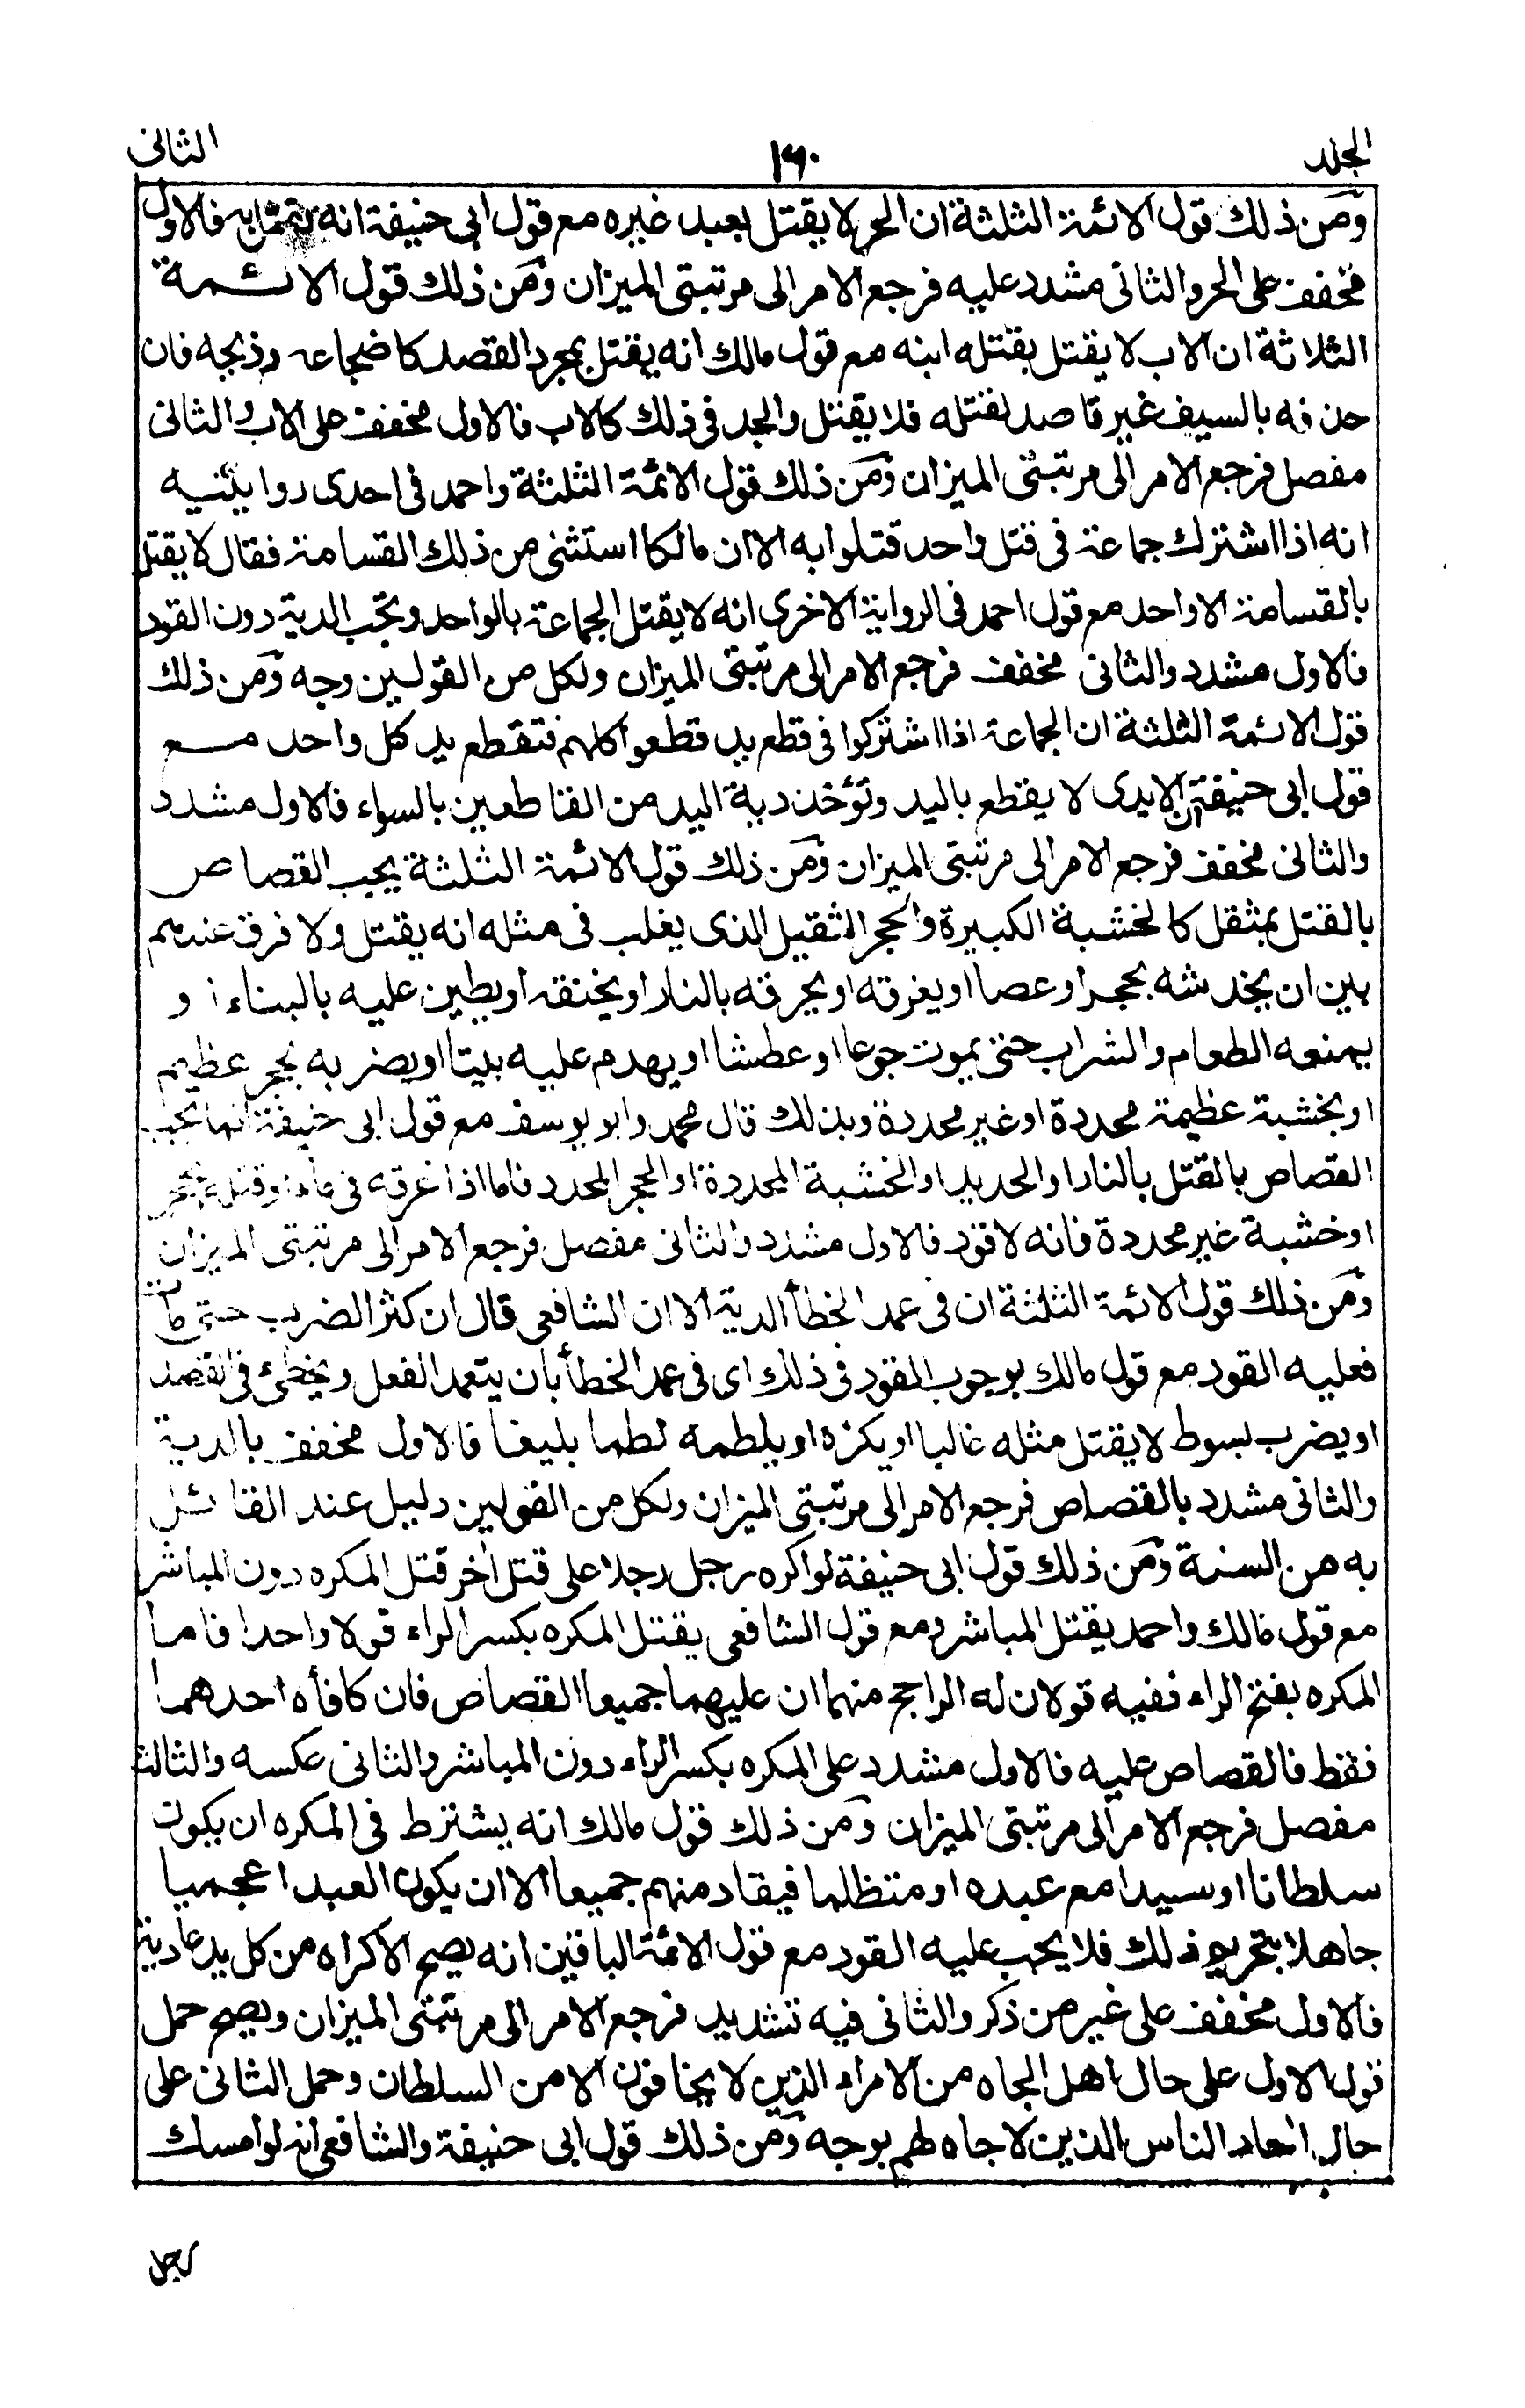 الجلد ١٦٠ الثانى
ومن ذلك قول الائمة الثلثة ان الحر لا يقتل بعبد غيره مع قول ابى حنيفة انه يقتل به فالاول
مخفف على الحر والثانى مشدد عليه فرجع الامر الى مرتبتى الميزان ومن ذلك قول الائمة
الثلاثة ان الاب لا يقتل بقتله ابنه مع قول مالك انه يقتل بمجرد القصد كاضجاعه وذبحه فان
حذفه بالسيف غير قاصد لقتله فلا يقتل والجد فى ذلك كالاب فالاول مخفف على الاب والثانى
مفصل فرجع الامر الى مرتبتى الميزان ومن ذلك قول الائمة الثلثة واحمد فى احدى روايتيه
انه اذا اشترك جماعة فى قتل واحد قتلوا به الا ان مالكا استثنى من ذلك القسامة فقال لا يقتل
بالقسامة الا واحد مع قول احمد فى الرواية الاخرى انه لا يقتل الجماعة بالواحد وتجب الدية دون القود
فالاول مشدد والثانى مخفف فرجع الامر الى مرتبتى الميزان ولكل من القولين وجه ومن ذلك
قول الائمة الثلثة ان الجماعة اذا اشتركوا فى قطع يد قطعوا كلهم فتقطع يد كل واحد مع
قول ابى حنيفة ان الايدى لا يقطع باليد وتؤخذ دية اليد من القاطعين بالسواء فالاول مشدد
والثانى مخفف فرجع الامر الى مرتبتى الميزان ومن ذلك قول الائمة الثلثة يجب القصاص
بالقتل بمثقل كالخشبة الكبيرة والحجر الثقيل الذى يغلب فى مثله انه يقتل ولا فرق عندهم
بين ان يخدشه بحجر او عصا او يغرقه او يحرقه بالنار او يخنقه او يطين عليه بالبناء او
يمنعه الطعام والشراب حتى يموت جوعا او عطشا او يهدم عليه بيتا او يضربه بحجر عظيم
او بخشبة عظيمة محددة او غير محددة وبذلك قال محمد وابو يوسف مع قول ابى حنيفة انما يجب
القصاص بالقتل بالنار او الحديد او الخشبة المحددة او الحجر المحدد فاما اذا غرقه فى ماء او قتله بحجر
او خشبة غير محددة فانه لا قود فالاول مشدد والثانى مفصل فرجع الامر الى مرتبتى الميزان
ومن ذلك قول الائمة الثلثة ان فى عمد الخطأ الدية الا ان الشافعى قال ان كثر الضرب حتى مات
فعليه القود مع قول مالك بوجوب القود فى ذلك اى فى عمد الخطأ بان يتعمد الفعل ويخطئ فى القصد
او يضرب بسوط لا يقتل مثله غالبا او يكزه او يلطمه لطما بليغا فالاول مخفف بالدية
والثانى مشدد بالقصاص فرجع الامر الى مرتبتى الميزان ولكل من القولين دليل عند القائل
به من السنة ومن ذلك قول ابى حنيفة لو اكره رجل رجلا على قتل اخر قتل المكره دون المباشر
مع قول مالك واحمد يقتل المباشر ومع قول الشافعى يقتل المكره بكسر الراء قولا واحدا فاما
المكره بفتح الراء ففيه قولان له الراجح منهما ان عليهما جميعا القصاص فان كافأه احدهما
فقط فالقصاص عليه فالاول مشدد على المكره بكسر الراء دون المباشر والثانى عكسه والثالث
مفصل فرجع الامر الى مرتبتى الميزان ومن ذلك قول مالك انه يشترط فى المكره ان يكون
سلطانا او سيدا مع عبده او متظلما فيقاد منهم جميعا الا ان يكون العبد اعجميا
جاهلا بتحريم ذلك فلا يجب عليه القود مع قول الائمة الباقين انه يصح الاكراه من كل يد عادية
فالاول مخفف على غير من ذكر والثانى فيه تشديد فرجع الامر الى مرتبتى الميزان ويصح حمل
قول الاول على حال اهل الجاه من الامراء الذين لا يخافون الا من السلطان وحمل الثانى على
حال احاد الناس الذين لا جاه لهم بوجه ومن ذلك قول ابى حنيفة والشافعى انه لو امسك
رجل